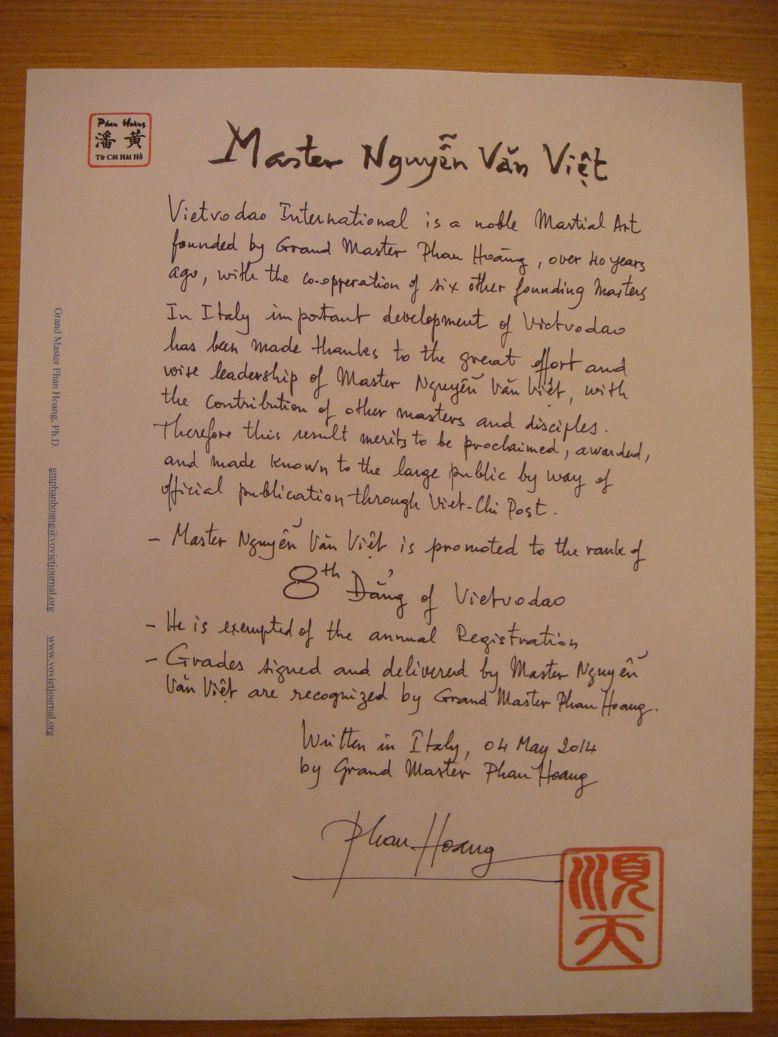 Phan Hoàng
潘 黄
Tứ Cõi Hải Hồ
Master Nguyễn Văn Việt
Vietvodao International is a noble Martial Art
founded by Grand Master Phan Hoàng, over 40 years
ago, with the co-opreration of six other founding Masters
In Italy important development of Vietvodao
has been made thanks to the great effort and
wise leadership of Master Nguyễn Văn Việt, with
the contribution of other masters and disciples.
Therefore this result merits to be proclaimed, awarded,
and made known to the large public by way of
official publication through Viet-Chi Post.
- Master Nguyễn Văn Việt is promoted to the rank of
8th Đẳng of Vietvodao
- He is exempted of the annual Registration
- Grades signed and delivered by Master Nguyễn
Văn Việt are recognized by Grand Master Phan Hoang.
Written in Italy, 04 May 2014
by Grand Master Phan Hoang
Phan Hoang
順
天
Grand Master Phan Hoang, Ph.D. gmphanhoang@vovietjournal.org www.vovietjournal.org